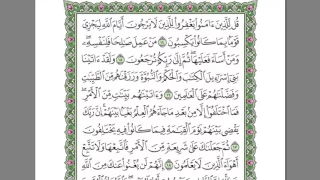 قُل لِّلَّذِينَ ءَامَنُوا۟ يَغْفِرُوا۟ لِلَّذِينَ لَا يَرْجُونَ أَيَّامَ ٱللَّهِ لِيَجْزِىَ
قَوْمًۢا بِمَا كَانُوا۟ يَكْسِبُونَ ١٤ مَنْ عَمِلَ صَـٰلِحًا فَلِنَفْسِهِۦ ۖ
وَمَنْ أَسَآءَ فَعَلَيْهَا ۖ ثُمَّ إِلَىٰ رَبِّكُمْ تُرْجَعُونَ ١٥ وَلَقَدْ ءَاتَيْنَا
بَنِىٓ إِسْرَٰٓءِيلَ ٱلْكِتَـٰبَ وَٱلْحُكْمَ وَٱلنُّبُوَّةَ وَرَزَقْنَـٰهُم مِّنَ ٱلطَّيِّبَـٰتِ
وَفَضَّلْنَـٰهُمْ عَلَى ٱلْعَـٰلَمِينَ ١٦ وَءَاتَيْنَـٰهُم بَيِّنَـٰتٍ مِّنَ ٱلْأَمْرِ ۖ
فَمَا ٱخْتَلَفُوٓا۟ إِلَّا مِنۢ بَعْدِ مَا جَآءَهُمُ ٱلْعِلْمُ بَغْيًۢا بَيْنَهُمْ ۚ إِنَّ رَبَّكَ
يَقْضِى بَيْنَهُمْ يَوْمَ ٱلْقِيَـٰمَةِ فِيمَا كَانُوا۟ فِيهِ يَخْتَلِفُونَ
١٧ ثُمَّ جَعَلْنَـٰكَ عَلَىٰ شَرِيعَةٍ مِّنَ ٱلْأَمْرِ فَٱتَّبِعْهَا وَلَا تَتَّبِعْ
أَهْوَآءَ ٱلَّذِينَ لَا يَعْلَمُونَ ١٨ إِنَّهُمْ لَن يُغْنُوا۟ عَنكَ مِنَ ٱللَّهِ